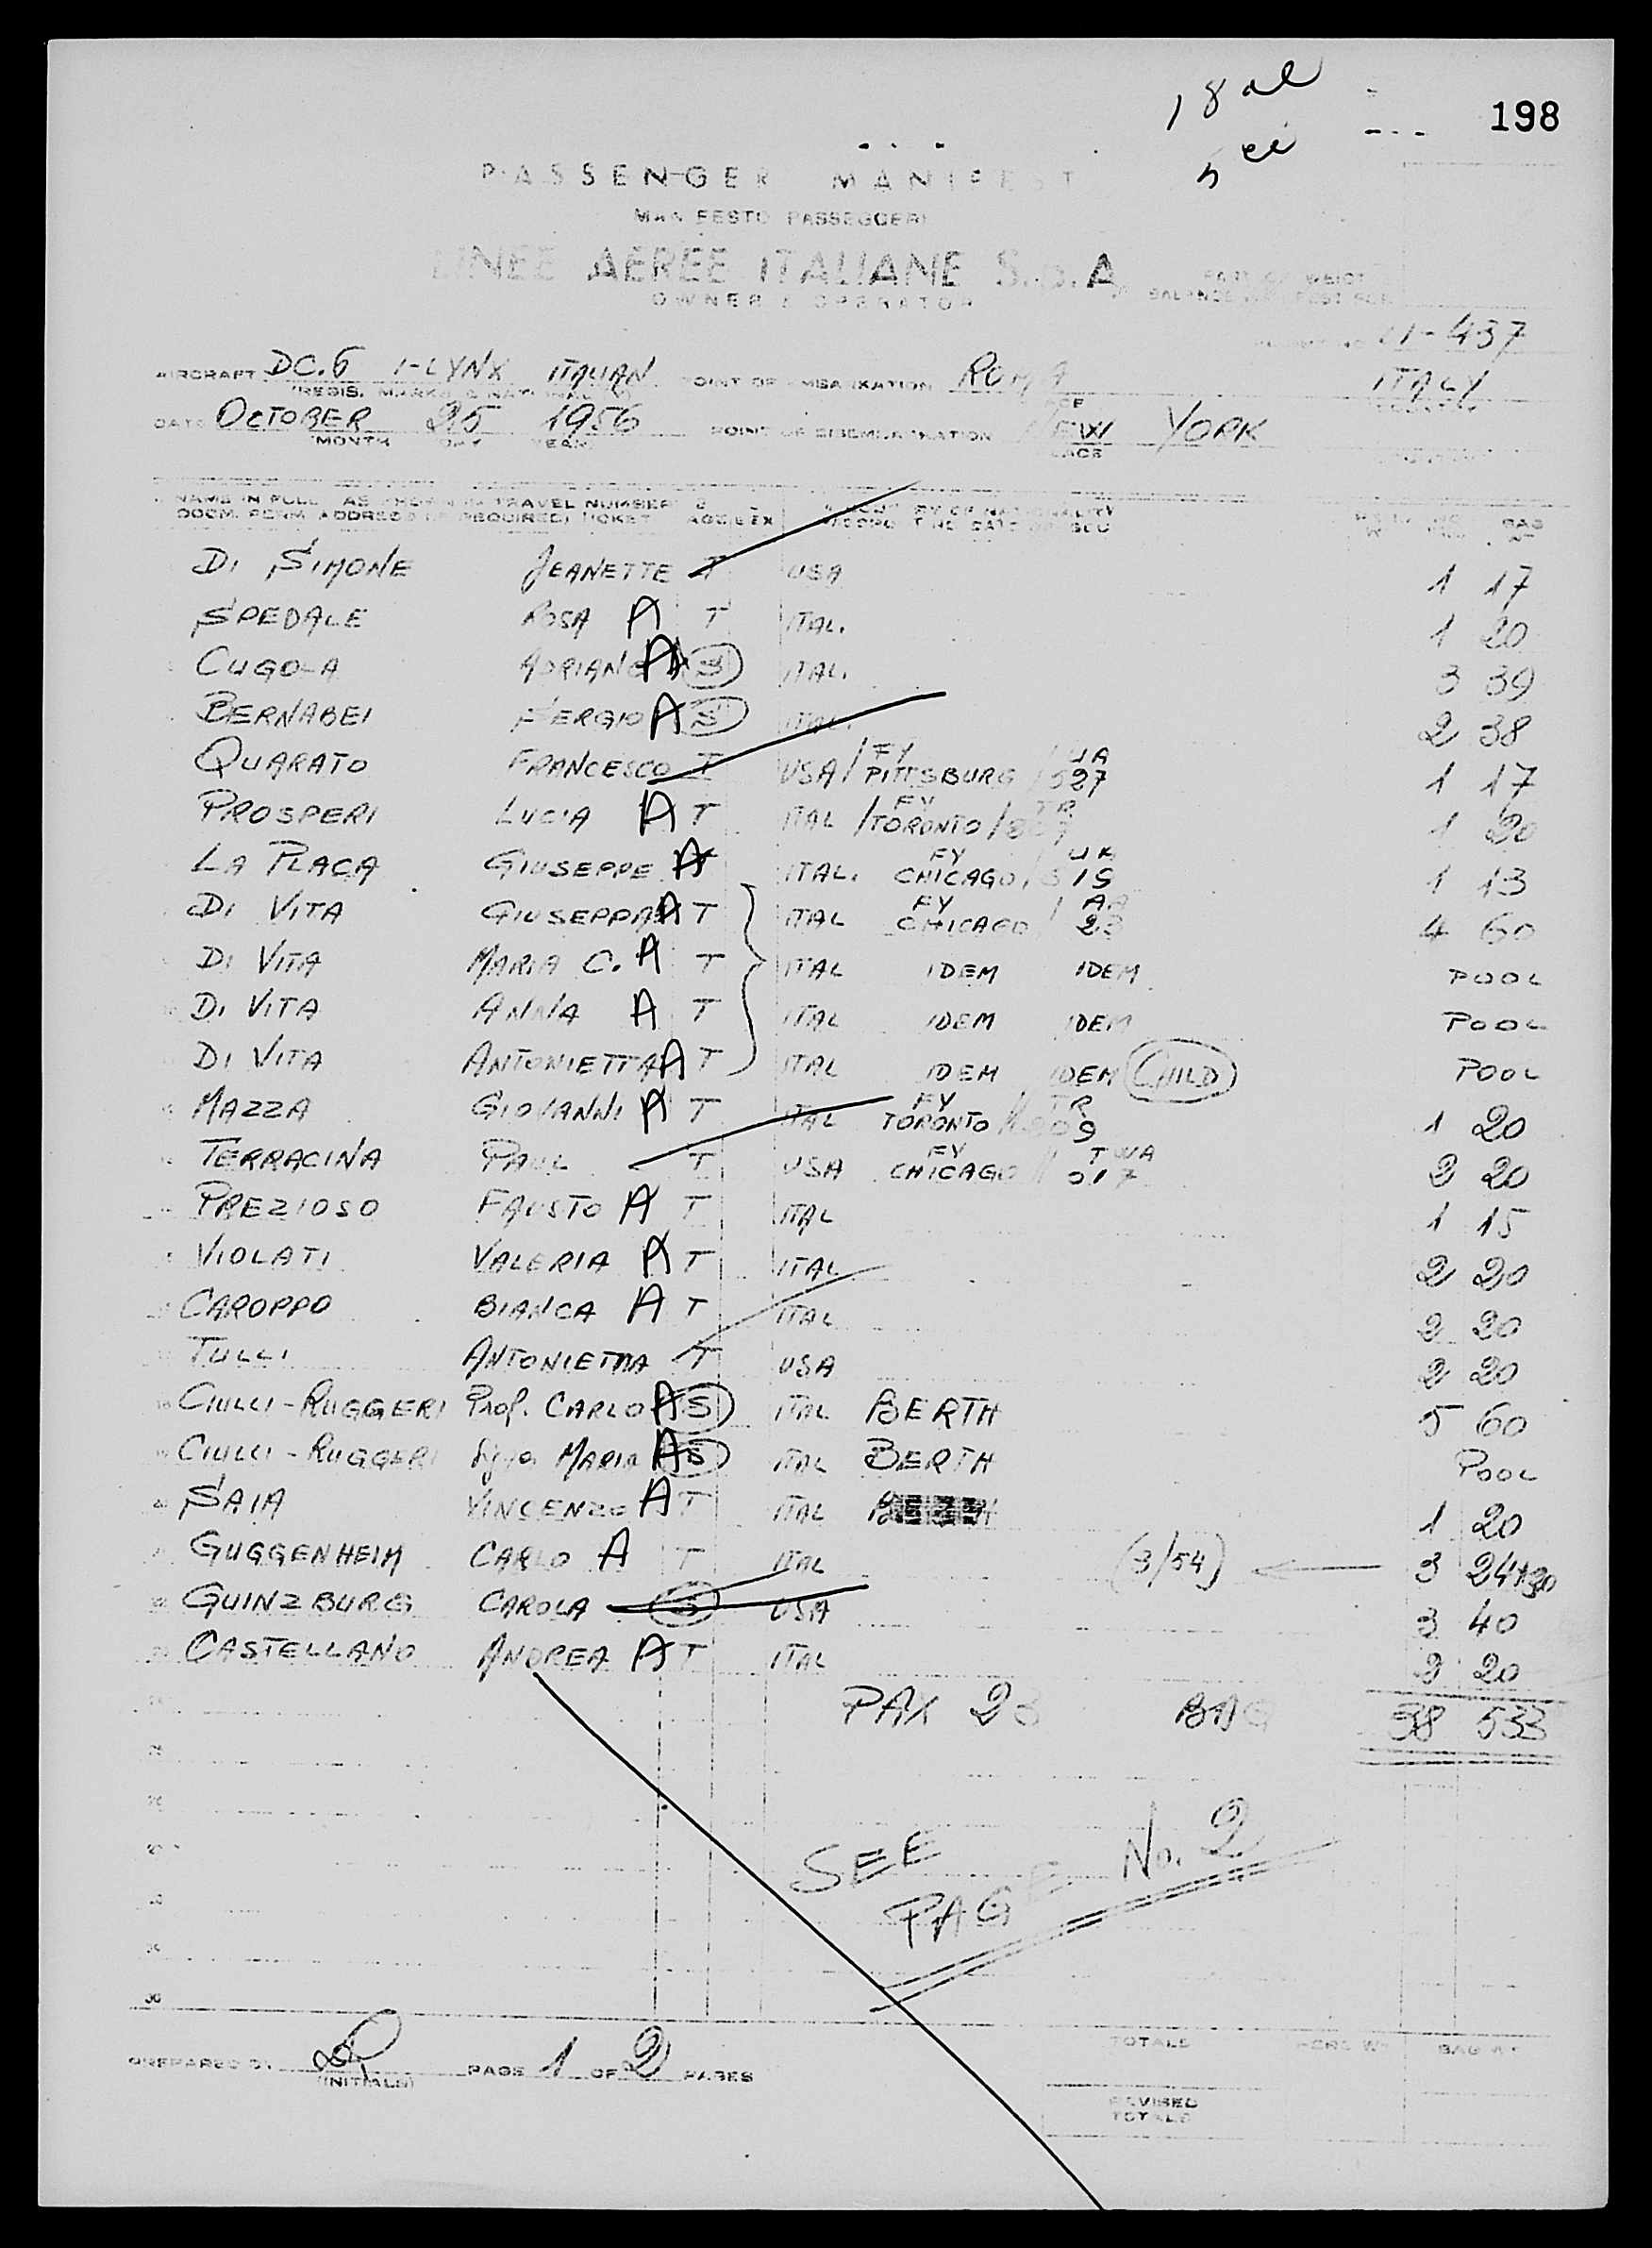 18 al
198
5 ci
PASSENGER MANIFEST
MANIFESTO PASSEGGERI
LINEE AEREE ITALIANE S.p.A
OWNER & OPERATOR
BALANCE
-437
AIRCRAFT DC.6 I-LYNX ITALIAN POINT OF EMBARKATION ROMA ITALY
REGIS. MARKS & NATIONAL
DATE OCTOBER 25 1956 POINT OF DISEMBARKATION NEW YORK
MONTH DAY YEAR PLACE
NAME IN FULL AS TRAVEL NUMBER
DOCM. FORM ADDRESS IF REQUIRED) TICKET AGE SEX BAG
DI SIMONE JEANETTE T USA 1 17
SPEDALE ROSA A T ITAL. 1 20
ADRIANO A S ITAL. 3 39
BERNABEI SERGIO A S ITAL. 2 38
FY UA
QUARATO FRANCESCO T USA / PITTSBURG / 527 1 17
FY TR
PROSPERI LUCIA A T ITAL / TORONTO / 1 20
FY
LA PLACA GIUSEPPE A ITAL. CHICAGO 1 13
FY / AA
DI VITA GIUSEPPA A T ITAL CHICAGO 4 60
DI VITA MARIA C. A T ITAL IDEM IDEM POOL
DI VITA ANNA A T ITAL IDEM IDEM POOL
DI VITA ANTONIETTA A T ITAL IDEM IDEM CHILD POOL
FY / TR
MAZZA GIOVANNI A T ITAL TORONTO 1 20
FY TWA
TERRACINA PAUL T USA CHICAGO 2 20
PREZIOSO FAUSTO A T ITAL 1 15
VIOLATI VALERIA A T ITAL 2 20
CAROPPO BIANCA A T ITAL 2 20
TULLI ANTONIETTA T USA 2 20
CIULLI-RUGGERI Prof. CARLO A S ITAL BERTH 5 60
CIULLI-RUGGERI Sig.ra MARIA A S ITAL BERTH POOL
SAIA VINCENZO A T ITAL 1 20
GUGGENHEIM CARLO A T ITAL (3/54) 3 24+30
GUINZBURG CAROLA S USA 3 40
CASTELLANO ANDREA A T ITAL 2 20
PAX 23 BAG 38 533
SEE PAGE No. 2
30
PREPARED BY PAGE 1 OF 2 PAGES
(INITIALS)
TOTALS BAG WT
REVISED
TOTALS